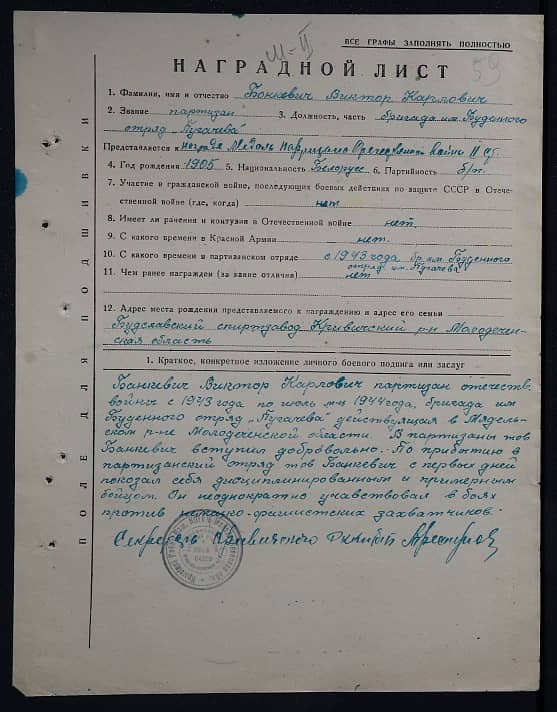 ВСЕ ГРАФЫ ЗАПОЛНЯТЬ ПОЛНОСТЬЮ
59
НАГРАДНОЙ ЛИСТ
1. Фамилия, имя и отчество Банкевич Виктор Карлович
2. Звание партизан 3. Должность, часть бригада им. Буденного
отряд „Пугачева"
Представляется к награде Медаль Партизана Отечественной Войны II ст.
4. Год рождения 1905 5. Национальность Белорус 6. Партийность б/п.
7. Участие в гражданской войне, последующих боевых действиях по защите СССР в Отече-
ственной войне (где, когда) нет
8. Имеет ли ранения и контузии в Отечественной войне нет.
9. С какого времени в Красной Армии нет.
10. С какого времени в партизанском отряде с 1943 года бр. им. Буденного
отряд им. Пугачова
11. Чем ранее награжден (за какие отличия) нет
12. Адрес места рождения представляемого к награждению и адрес его семьи
Будславский спиртзавод Кривичский р-н Молодечен-
ская область
1. Краткое, конкретное изложение личного боевого подвига или заслуг
Банкевич Виктор Карлович партизан отечеств.
войны с 1943 года по июль м-ц 1944 года, бригада им
Буденного отряд „Пугачева" действующая в Мядель-
ском р-не Молодеченской области. В партизаны тов
Банкевич вступил добровольно. По прибытию в
партизанский отряд тов Банкевич с первых дней
показал себя дисциплинированным и примерным
бойцом. Он неоднократно учавствовал в боях
против немецко-фашистских захватчиков.
Секретарь Кривичского
ПОЛЕ ДЛЯ ПОДШИВКИ